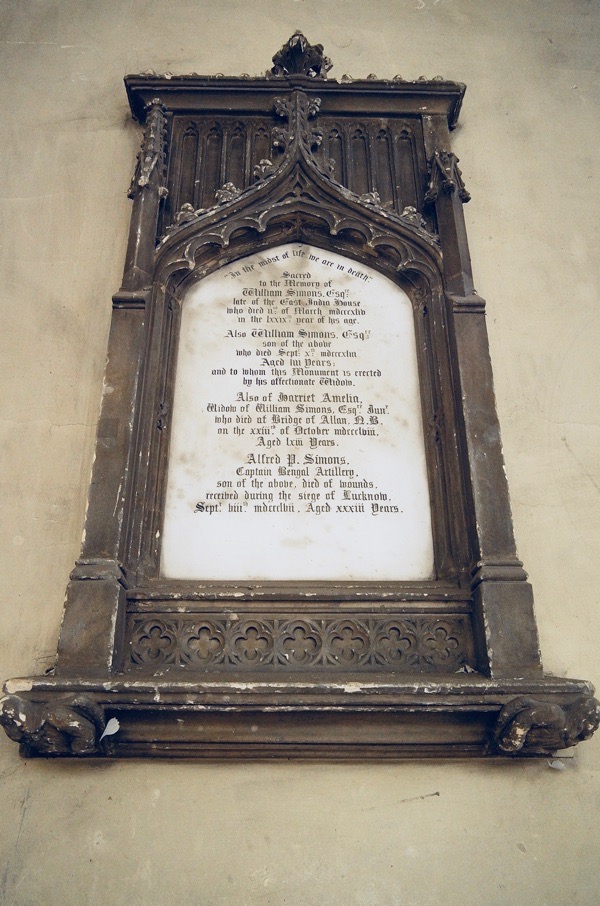 "In the midst of life we are in death".
Sacred
to the Memory of
William Simons, Esqre.
late of the East India House
who died of March mdcccxliv
in the lxxixth year of his age.
Also William Simons, Esqre.
son of the above
who died Septr. xth mdcccxliii
Aged Years;
and to whom this Monument is erected
by his affectionate Widow.
Also of Harriet Amelia,
Widow of William Simons, Esqre. Junr.
who died at Bridge of Allan, N.B.
on the xxiiird. of October mdccclviii,
Aged lxiii Years.
Alfred P. Simons,
Captain Bengal Artillery,
son of the above, died of wounds,
received during the siege of Lucknow,
Septr. mdccclvii, Aged xxxiii Years.